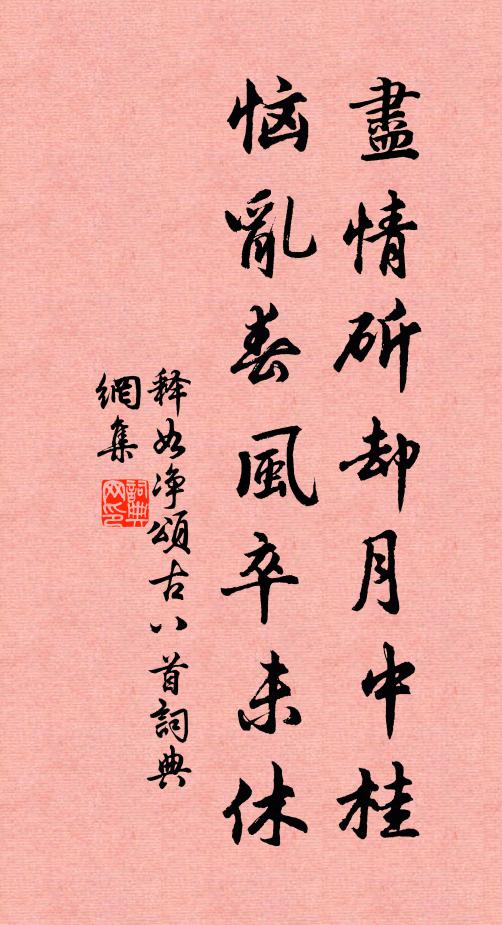 盡情斫却月中桂
恼亂春風卒未休
释如净頌古八首詞典
網集
詞典
网印